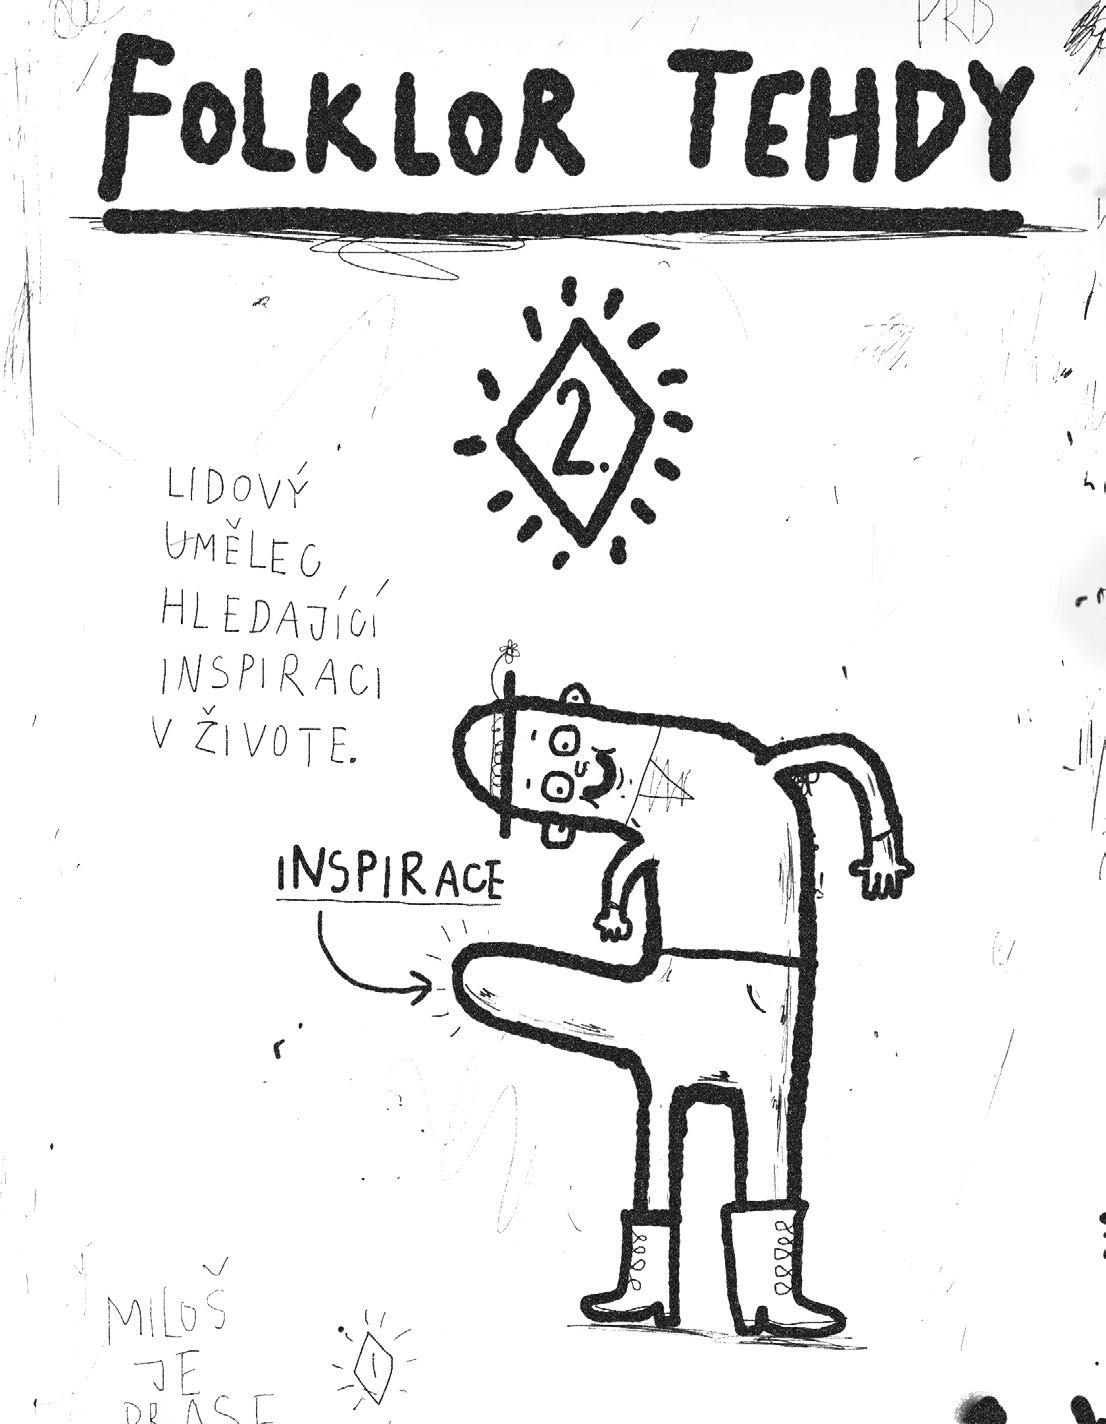 PRD
FOLKLOR TEHDY
2.
LIDOVÝ
UMĚLEC
HLEDAJÍCÍ
INSPIRACI
V ŽIVOTE.
INSPIRACE
MILOŠ
JE
PRASE
1